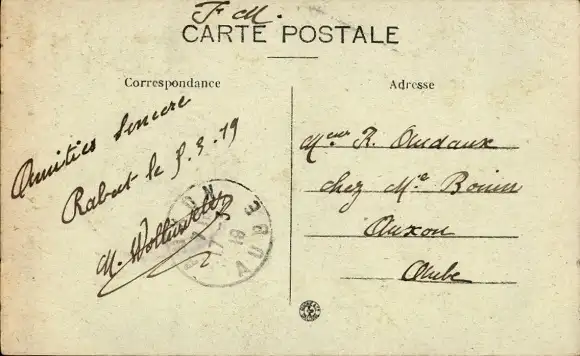 F. M.
CARTE POSTALE
Correspondance
Amitiés Sincère
Rabat le 9.3.19
Adresse
Meur R. Oudaux
chez Me Bouin
Auxon
Aube
AUBE